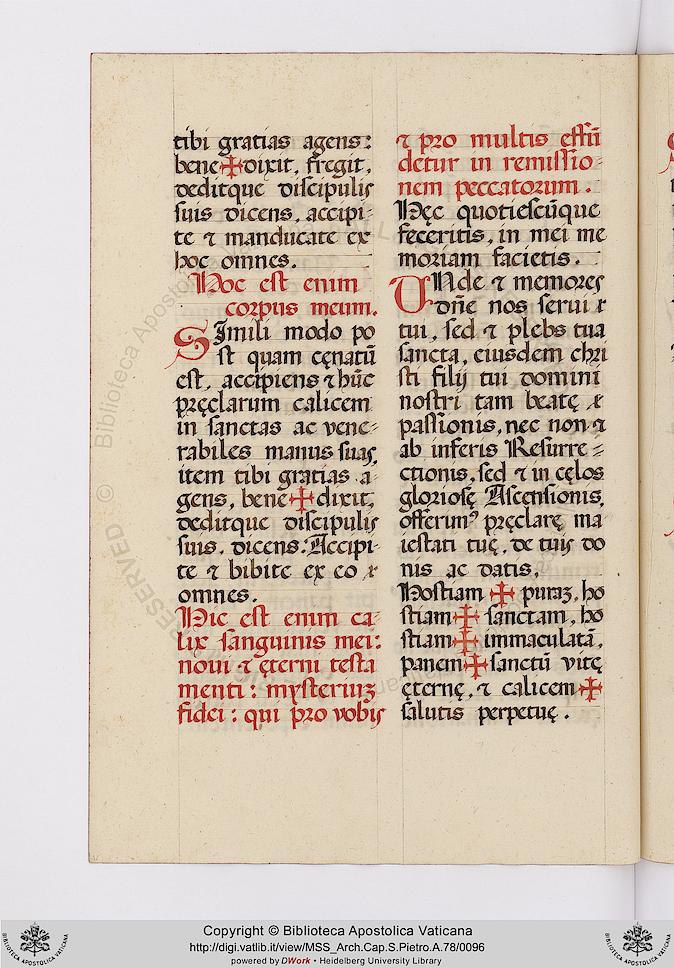 tibi gratias agens:
bene✠dixit, fregit,
deditque discipulis
suis dicens, accipi-
te ⁊ manducate ex
hoc omnes.
Hoc est enim
corpus meum.
SImili modo po
st quam cęnatū
est, accipiens ⁊ hūc
pręclarum calicem
in sanctas ac vene-
rabiles manus suas,
item tibi gratias a-
gens, bene✠dixit,
deditque discipulis
suis, dicens: Accipi-
te ⁊ bibite ex eo
omnes.
Hic est enim ca-
lix sanguinis mei:
novi ⁊ ęterni testa
menti: mysteriuꝫ
fidei: qui pro vobis
⁊ pro multis effū
detur in remissio-
nem peccatorum.
Hęc quotiescūque
feceritis, in mei me
moriam facietis.
UNde ⁊ memores
dn̄e nos servi
tui, sed ⁊ plebs tua
sancta, eiusdem chri
sti filij tui domini
nostri tam beatę
passionis, nec non ⁊
ab inferis Resurre=
ctionis, sed ⁊ in cęlos
gloriosę Ascensionis,
offerimꝰ pręclarę ma
iestati tuę, de tuis do
nis ac datis,
Hostiam ✠ puraꝫ, ho
stiam ✠ sanctam, ho
stiam ✠ immaculatā,
panem ✠ sanctū vitę
ęternę, ⁊ calicem ✠
salutis perpetuę.
Copyright © Biblioteca Apostolica Vaticana
http://digi.vatlib.it/view/MSS_Arch.Cap.S.Pietro.A.78/0096
powered by DWork • Heidelberg University Library
BIBLIOTECA APOSTOLICA VATICANA
BIBLIOTECA APOSTOLICA VATICANA